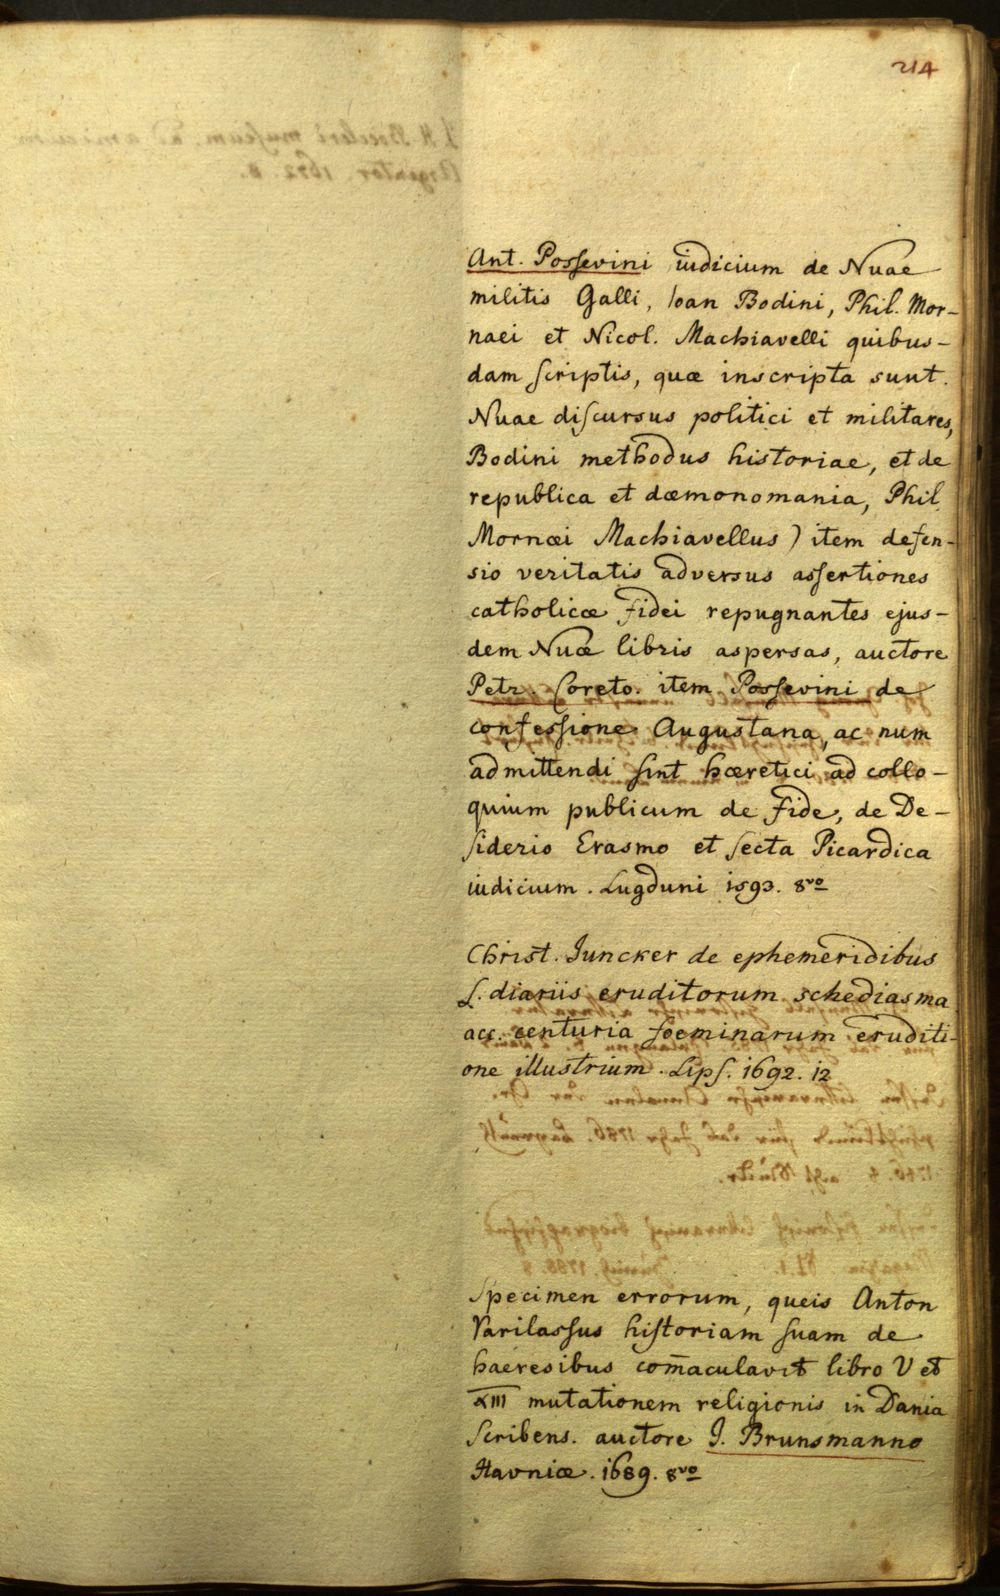 214
Ant. Possevini iudicium de Nuae
militis Galli, Ioan Bodini, Phil. Mor-
naei et Nicol. Machiavelli quibus-
dam scriptis, quæ inscripta sunt.
Nuae discursus politici et militares,
Bodini methodus historiae, et de
republica et dæmonomania, Phil.
Mornæi Machiavellus) item defen-
sio veritatis adversus assertiones
catholicæ fidei repugnantes ejus-
dem Nuæ libris aspersas, auctore
Petr. Coreto. item Possevini de
confessione Augustana, ac num
admittendi sint hæretici ad collo-
quium publicum de Fide, de De-
siderio Erasmo et secta Picardica
iudicium. Lugduni 1593. 8vo
Christ. Juncker de ephemeridibus
S. diariis eruditorum schediasma
acc. centuria foeminarum eruditi-
one illustrium. Lips. 1692. 12
Specimen errorum, queis Anton
Varilassus historiam suam de
haeresibus com̄aculavit libro V et
XIII mutationem religionis in Dania
scribens. auctore J. Brunsmanno
Havniæ. 1689. 8vo